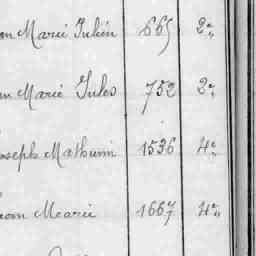 Marie Julien 665 2e
Marie Jules 752 2e
Joseph Mathurin 1536 4e
Marie 1667 4e